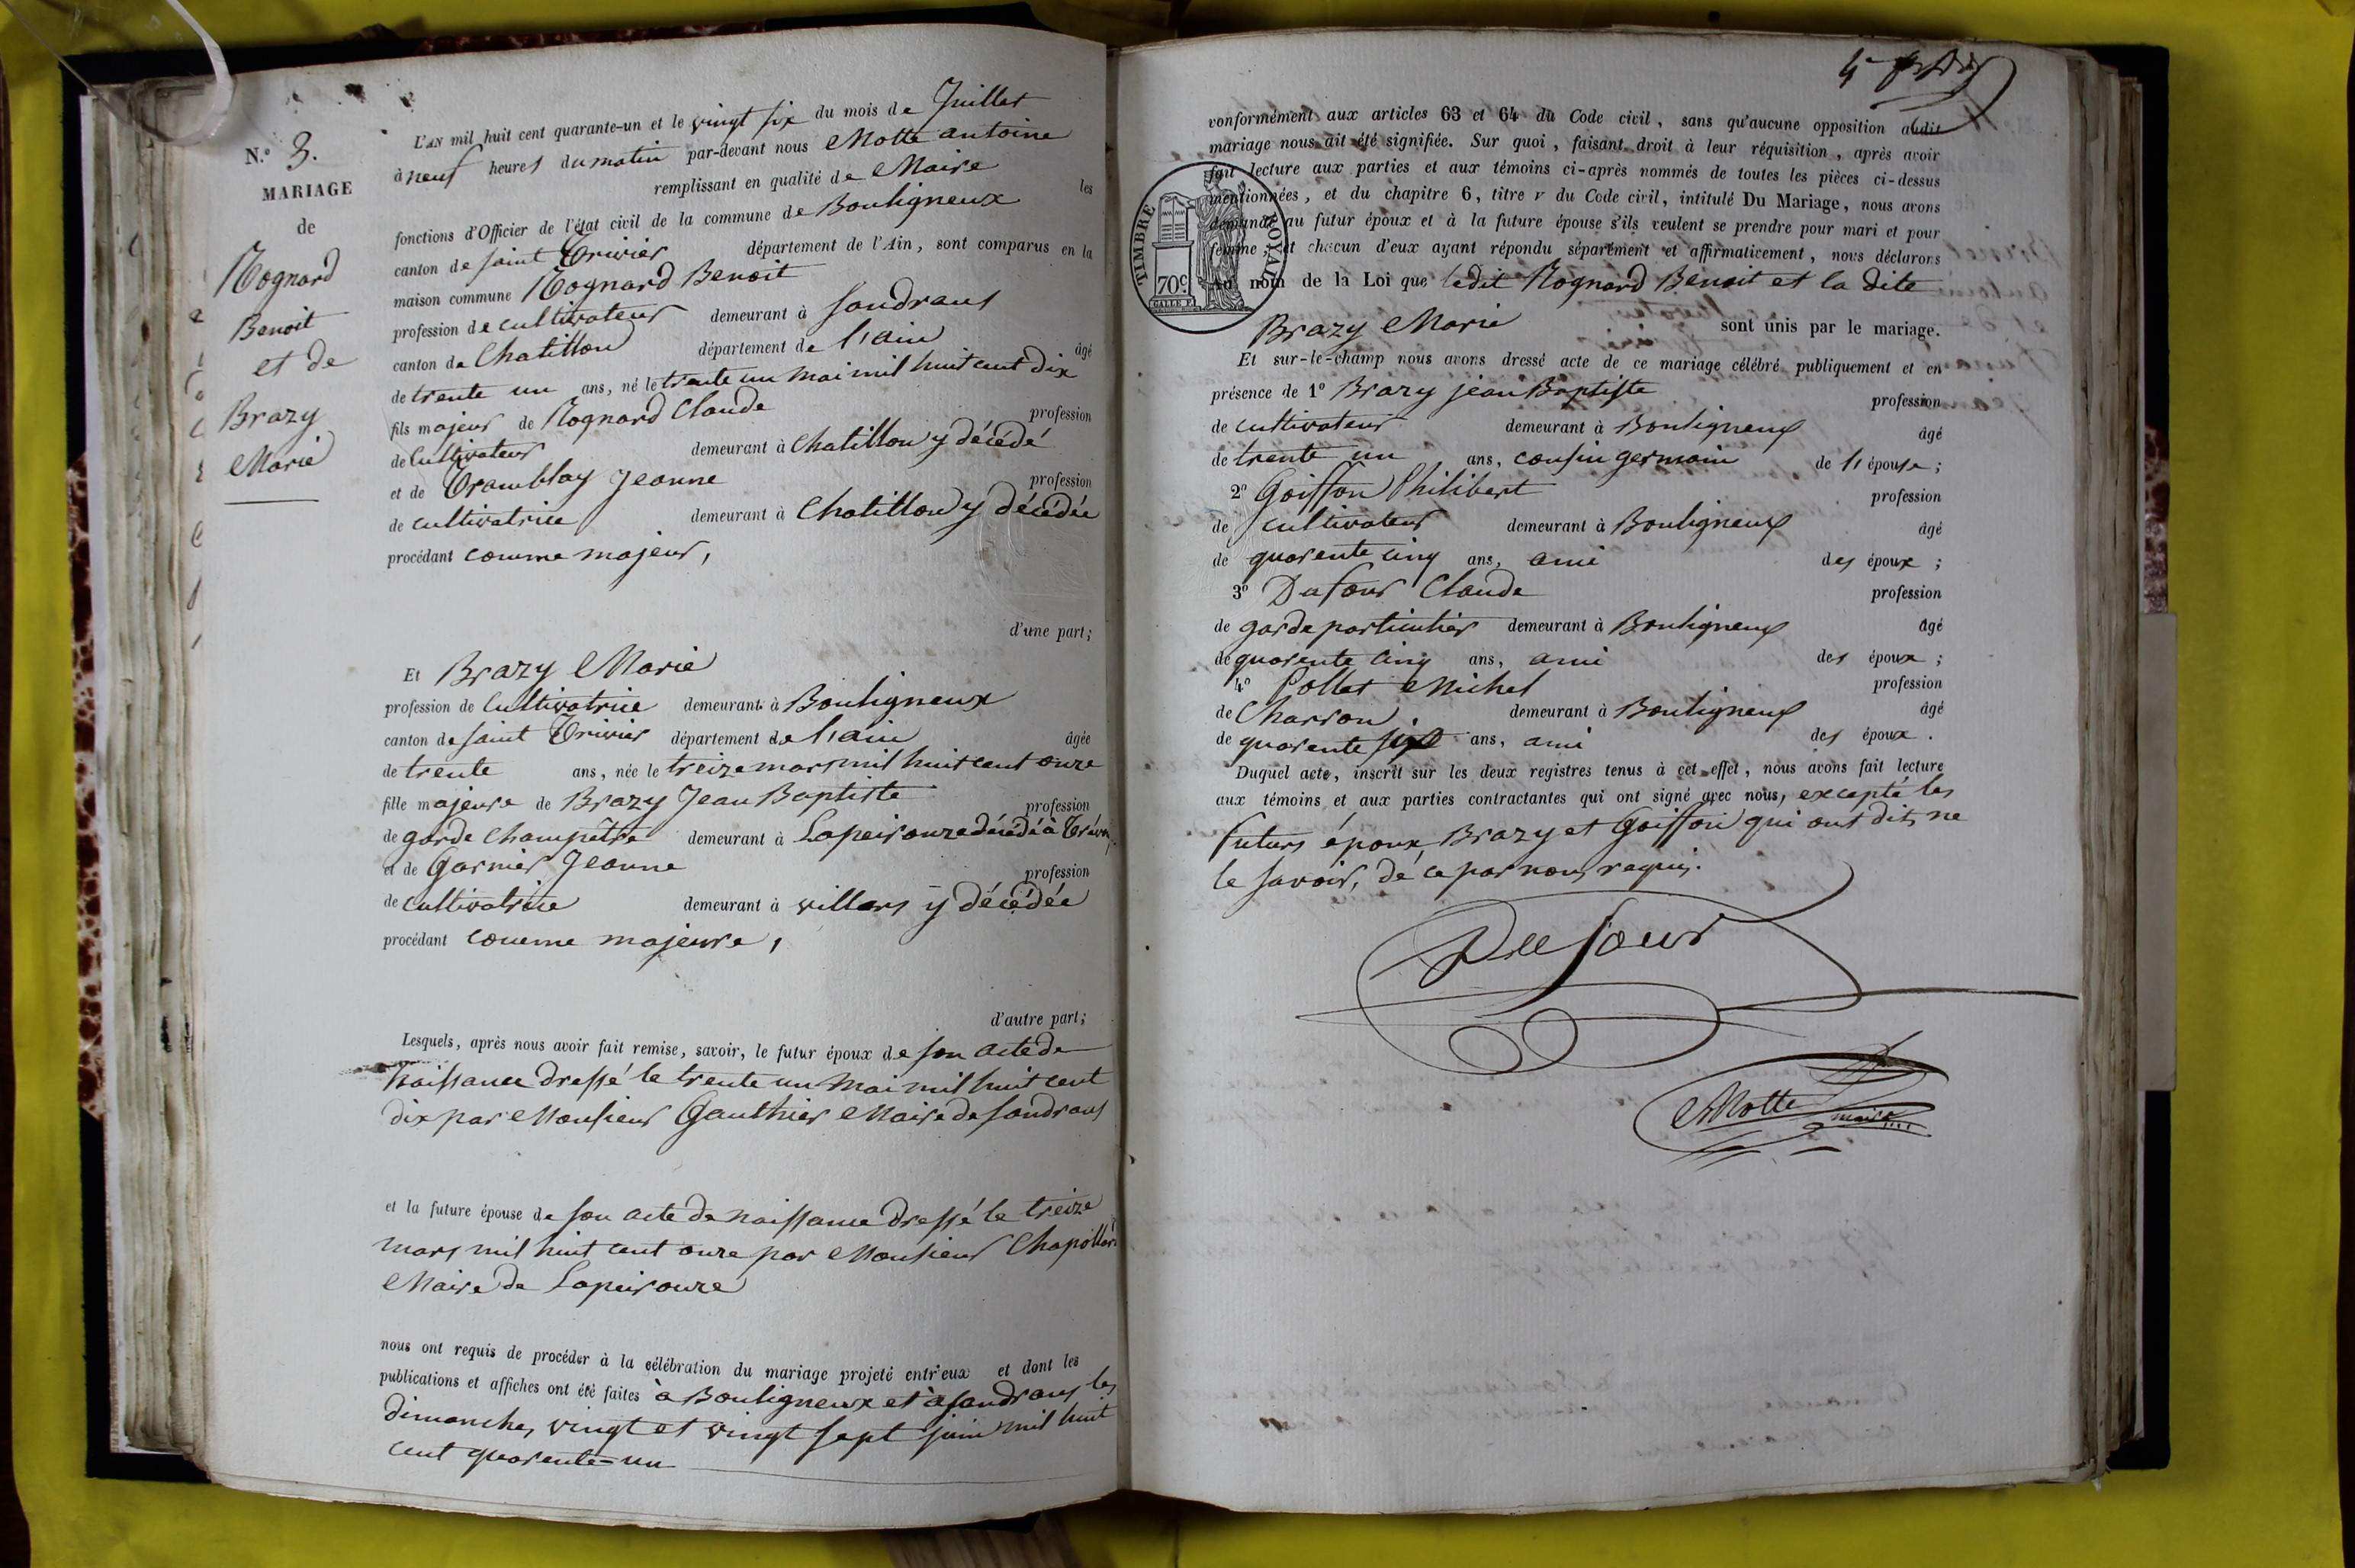 N.º 3.
MARIAGE
de
Rognard
Benoit
et de
Brazy
Marie
L'AN mil huit cent quarante-un et le vingt six du mois de Juillet
à neuf heures du matin par-devant nous Motte antoine
remplissant en qualité de Maire les
fonctions d'Officier de l'état civil de la commune de Bouligneux
canton de saint Trivier département de l'Ain, sont comparus en la
maison commune Rognard Benoit
profession de cultivateur demeurant à Sandrans
canton de Chatillon département de l'ain âgé
de trente un ans, né le trente un mai mil huit cent dix
fils majeur de Rognard Claude profession
de Cultivateur demeurant à Chatillon y décédé
et de Tramblay Jeanne profession
de cultivatrice demeurant à Chatillon y décédée
procédant comme majeur,
d'une part;
Et Brazy Marie
profession de Cultivatrice demeurant à Bouligneux
canton de saint Trivier département de l'ain âgée
de trente ans, née le treize mars mil huit cent onze
fille majeure de Brazy Jean Baptiste profession
de garde Champêtre demeurant à Lapeirouze décédé à
et de Garnier Jeanne profession
de cultivatrice demeurant à villars y décédée
procédant comme majeure,
d'autre part;
Lesquels, après nous avoir fait remise, savoir, le futur époux de son acte de
Naissance dressé le trente un mai mil huit cent
dix par Monsieur Gauthier Maire de sandrans
et la future épouse de son acte de naissance dressé le treize
mars mil huit cent onze par Monsieur
Maire de Lapeirouze
nous ont requis de procéder à la célébration du mariage projeté entr'eux et dont les
publications et affiches ont été faites à Bouligneux et à sandrans les
dimanches vingt et vingt sept juin mil huit
cent quarante-un
conformément aux articles 63 et 64 du Code civil, sans qu'aucune opposition audit
mariage nous ait été signifiée. Sur quoi, faisant droit à leur réquisition, après avoir
fait lecture aux parties et aux témoins ci-après nommés de toutes les pièces ci-dessus
mentionnées, et du chapitre 6, titre v du Code civil, intitulé Du Mariage, nous avons
demandé au futur époux et à la future épouse s'ils veulent se prendre pour mari et pour
femme et chacun d'eux ayant répondu séparément et affirmativement, nous déclarons
Au nom de la Loi que ledit Rognard Benoit et la dite
Brazy Marie sont unis par le mariage.
TIMBRE ROYAL
70 C.
Et sur-le-champ nous avons dressé acte de ce mariage célébré publiquement et en
présence de 1º Brazy jean Baptiste profession
de cultivateur demeurant à Bouligneux âgé
de trente un ans, cousin germain de l'épouse;
2º Goiffon Philibert profession
de cultivateur demeurant à Bouligneux âgé
de quarente cinq ans, ami des époux;
3º Dufour Claude profession
de garde particulier demeurant à Bouligneux âgé
de quarente cinq ans, ami des époux;
4º Pollet Michel profession
de Charron demeurant à Bouligneux âgé
de quarente ans, ami des époux.
Duquel acte, inscrit sur les deux registres tenus à cet effet, nous avons fait lecture
aux témoins et aux parties contractantes qui ont signé avec nous, excepté les
futurs époux, Brazy et Goiffon qui ont dit ne
le savoir, de ce par nous requis.
Dufour
Motte maire